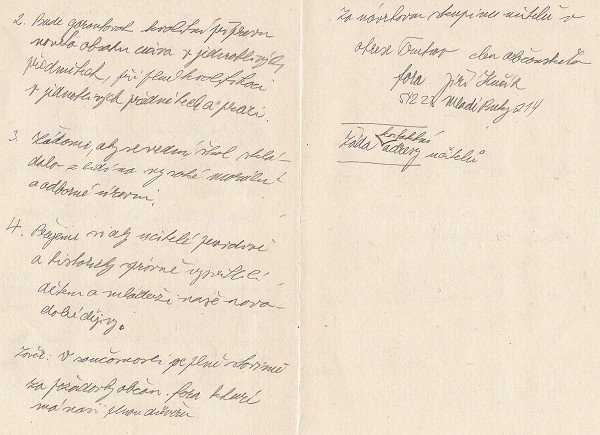 2. Bude garantovat kvalitní přípravu
nového obsahu učiva v jednotlivých
předmětech, při plné kvalifikaci
v jednotlivých předmětech a praxi.
3. Žádáme, aby se vedení škol sklá-
dalo z lidí na vysoké morální
a odborné úrovni.
4. Přejeme si aby učitelé pravdivě
a historicky správně vysvětlili
dětem a mládeži naše novo-
dobé dějiny.
Závěr: V současnosti se plně stavíme
za požadavky občan. fora které
má naši plnou důvěru.
Za návrhovou skupinu učitelů v
okrese Trutnov člen občanského
fora Jiří
542 23 Mladé Buky 214
kontaktní
Žádá adresy učitelů